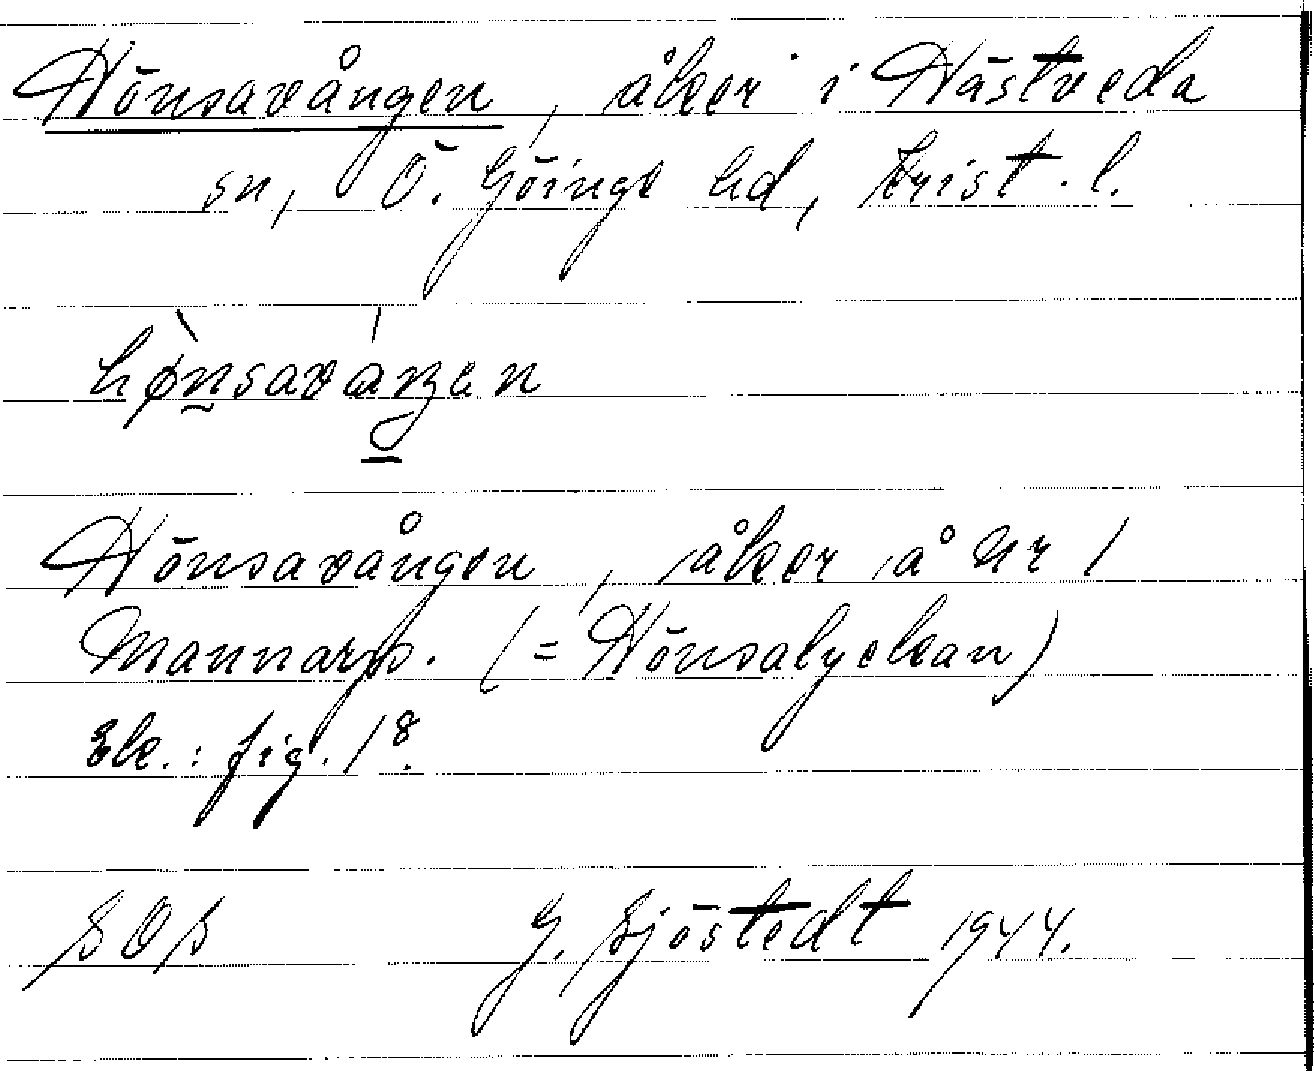 Hönsavången, åker i Hästveda
sn, Ö. Göinge hd, Krist. l.
Hönsavången, åker å Nr 1
Mannarp. (= Hönsalyckan)
Ek.: fig. 18.
SOS G. Sjöstedt 1944.